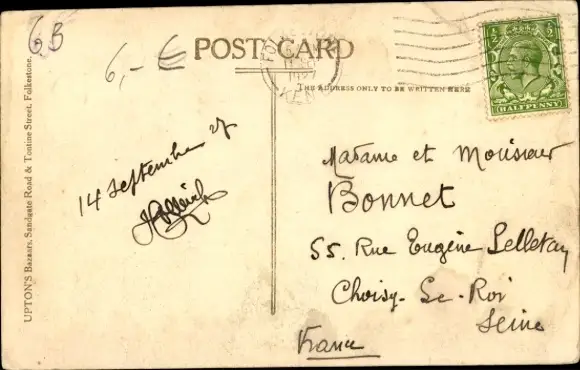 6B
6,- €
POST CARD
THE ADDRESS ONLY TO BE WRITTEN HERE
1927
KENT
½
HALFPENNY
UPTON'S Bazaars, Sandgate Road & Tontine Street, Folkestone.
14 September 27
Madame et Monsieur
Bonnet
55. Rue Eugène Pelletan
Choisy-Le-Roi
Seine
France